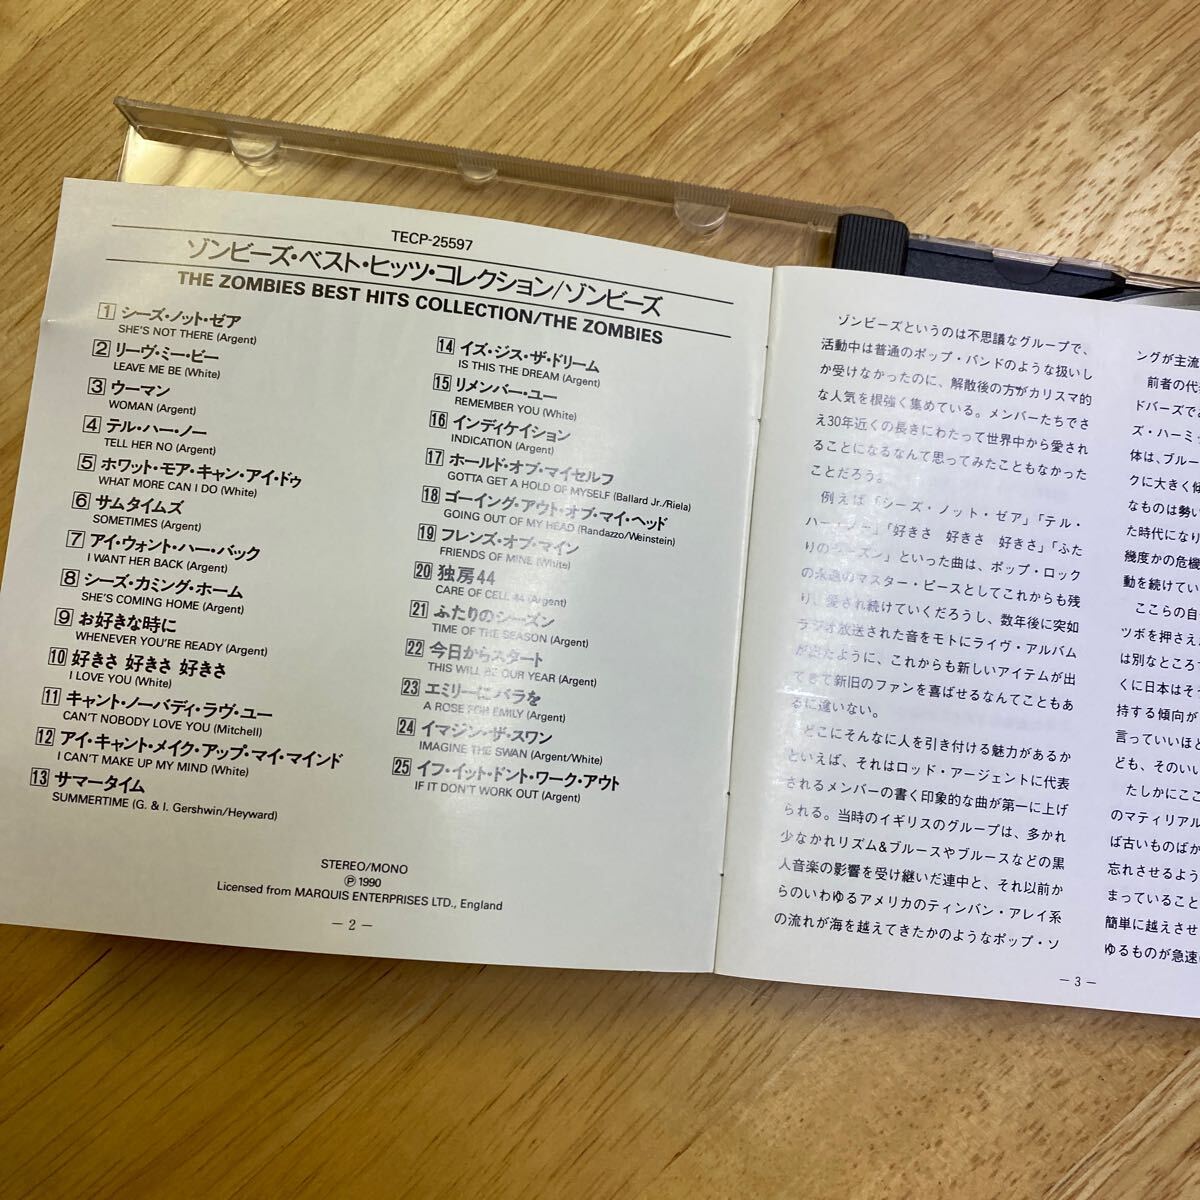 TECP-25597
ゾンビーズ・ベスト・ヒッツ・コレクション/ゾンビーズ
THE ZOMBIES BEST HITS COLLECTION/THE ZOMBIES
1 シーズ・ノット・ゼア
SHE'S NOT THERE (Argent)
2 リーヴ・ミー・ビー
LEAVE ME BE (White)
3 ウーマン
WOMAN (Argent)
4 テル・ハー・ノー
TELL HER NO (Argent)
5 ホワット・モア・キャン・アイ・ドゥ
WHAT MORE CAN I DO (White)
6 サムタイムズ
SOMETIMES (Argent)
7 アイ・ウォント・ハー・バック
I WANT HER BACK (Argent)
8 シーズ・カミング・ホーム
SHE'S COMING HOME (Argent)
9 お好きな時に
WHENEVER YOU'RE READY (Argent)
10 好きさ 好きさ 好きさ
I LOVE YOU (White)
11 キャント・ノーバディ・ラヴ・ユー
CAN'T NOBODY LOVE YOU (Mitchell)
12 アイ・キャント・メイク・アップ・マイ・マインド
I CAN'T MAKE UP MY MIND (White)
13 サマータイム
SUMMERTIME (G. & I. Gershwin/Heyward)
14 イズ・ジス・ザ・ドリーム
IS THIS THE DREAM (Argent)
15 リメンバー・ユー
REMEMBER YOU (White)
16 インディケイション
INDICATION (Argent)
17 ホールド・オブ・マイセルフ
GOTTA GET A HOLD OF MYSELF (Ballard Jr./Riela)
18 ゴーイング・アウト・オブ・マイ・ヘッド
GOING OUT OF MY HEAD (Randazzo/Weinstein)
19 フレンズ・オブ・マイン
FRIENDS OF MINE (White)
20 独房44
CARE OF CELL 44 (Argent)
21 ふたりのシーズン
TIME OF THE SEASON (Argent)
22 今日からスタート
THIS WILL BE OUR YEAR (Argent)
23 エミリーにバラを
A ROSE FOR EMILY (Argent)
24 イマジン・ザ・スワン
IMAGINE THE SWAN (Argent/White)
25 イフ・イット・ドント・ワーク・アウト
IF IT DON'T WORK OUT (Argent)
STEREO/MONO
Ⓟ 1990
Licensed from MARQUIS ENTERPRISES LTD., England
— 2 —
ゾンビーズというのは不思議なグループで、
活動中は普通のポップ・バンドのような扱いし
か受けなかったのに、解散後の方がカリスマ的
な人気を根強く集めている。メンバーたちでさ
え30年近くの長きにわたって世界中から愛され
ることになるなんて思ってみたこともなかった
ことだろう。
例えば「シーズ・ノット・ゼア」「テル・
ハー・ノー」「好きさ 好きさ 好きさ」「ふた
りのシーズン」といった曲は、ポップ・ロック
の永遠のマスター・ピースとしてこれからも残
り、愛され続けていくだろうし、数年後に突如
ラジオ放送された音をモトにライヴ・アルバム
が出たように、これからも新しいアイテムが出
てきて新旧のファンを喜ばせるなんてこともあ
るに違いない。
どこにそんなに人を引き付ける魅力があるか
といえば、それはロッド・アージェントに代表
されるメンバーの書く印象的な曲が第一に上げ
られる。当時のイギリスのグループは、多かれ
少なかれリズム&ブルースやブルースなどの黒
人音楽の影響を受け継いだ連中と、それ以前か
らのいわゆるアメリカのティンパン・アレイ系
の流れが海を越えてきたかのようなポップ・ソ
— 3 —
ングが主流
前者の代
ドバーズで
ズ・ハーミ
体は、ブルー
クに大きく
なものは勢い
た時代になり
幾度かの危機
動を続けてい
ここらの自
ツボを押さえ
は別なところ
くに日本はそ
持する傾向が
言っていいほど
ども、そのいい
たしかにここ
のマティリアル
ば古いものばか
忘れさせるよう
まっていること
簡単に越えさせ
ゆるものが急速